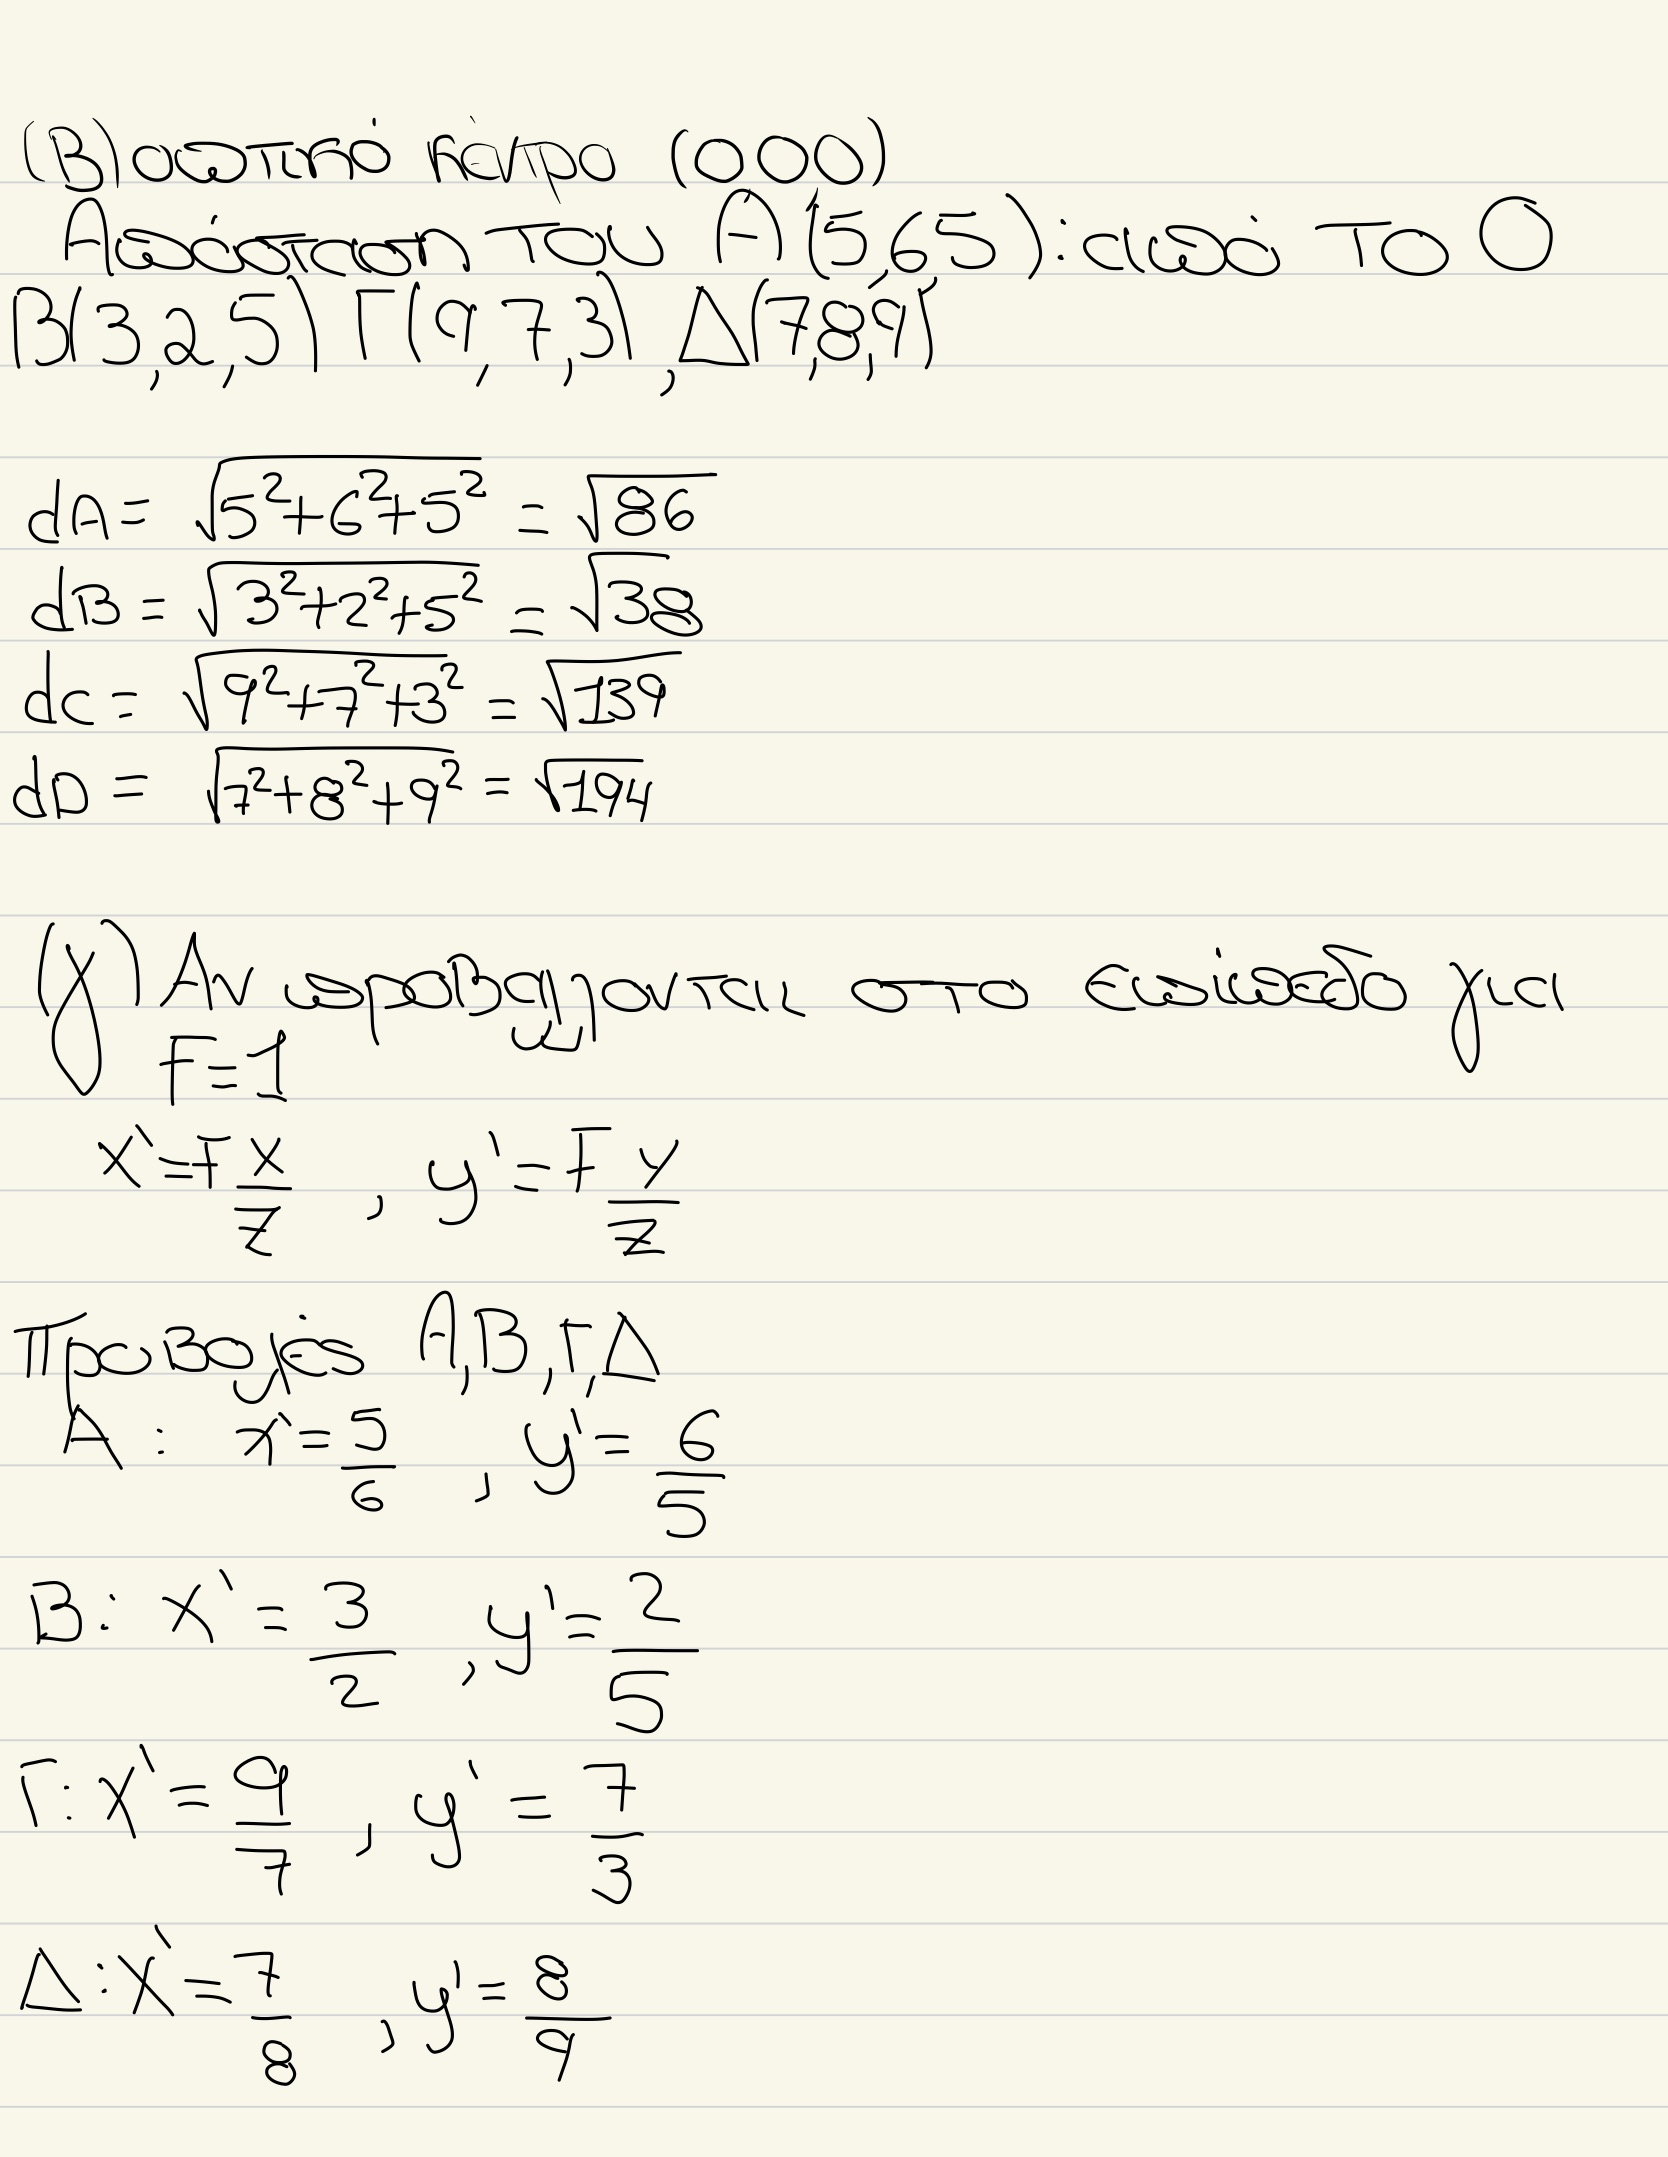 (Β) οπτικό κέντρο (000)
Απόσταση του Α(5,6,5): από το Ο
Β(3,2,5) Γ(9,7,3), Δ(7,8,9)
dA = √5²+6²+5² = √86
dB = √3²+2²+5² = √38
dC = √9²+7²+3² = √139
dD = √7²+8²+9² = √194
(γ) Αν προβάλλονται στο επίπεδο για
F=1
x'=F x/z , y'=F y/z
Προβολές Α,Β,Γ,Δ
Α: x'=5/6 , y'=6/5
Β: x'=3/2 , y'=2/5
Γ: x'=9/7 , y'=7/3
Δ: x'=7/8 , y'=8/9